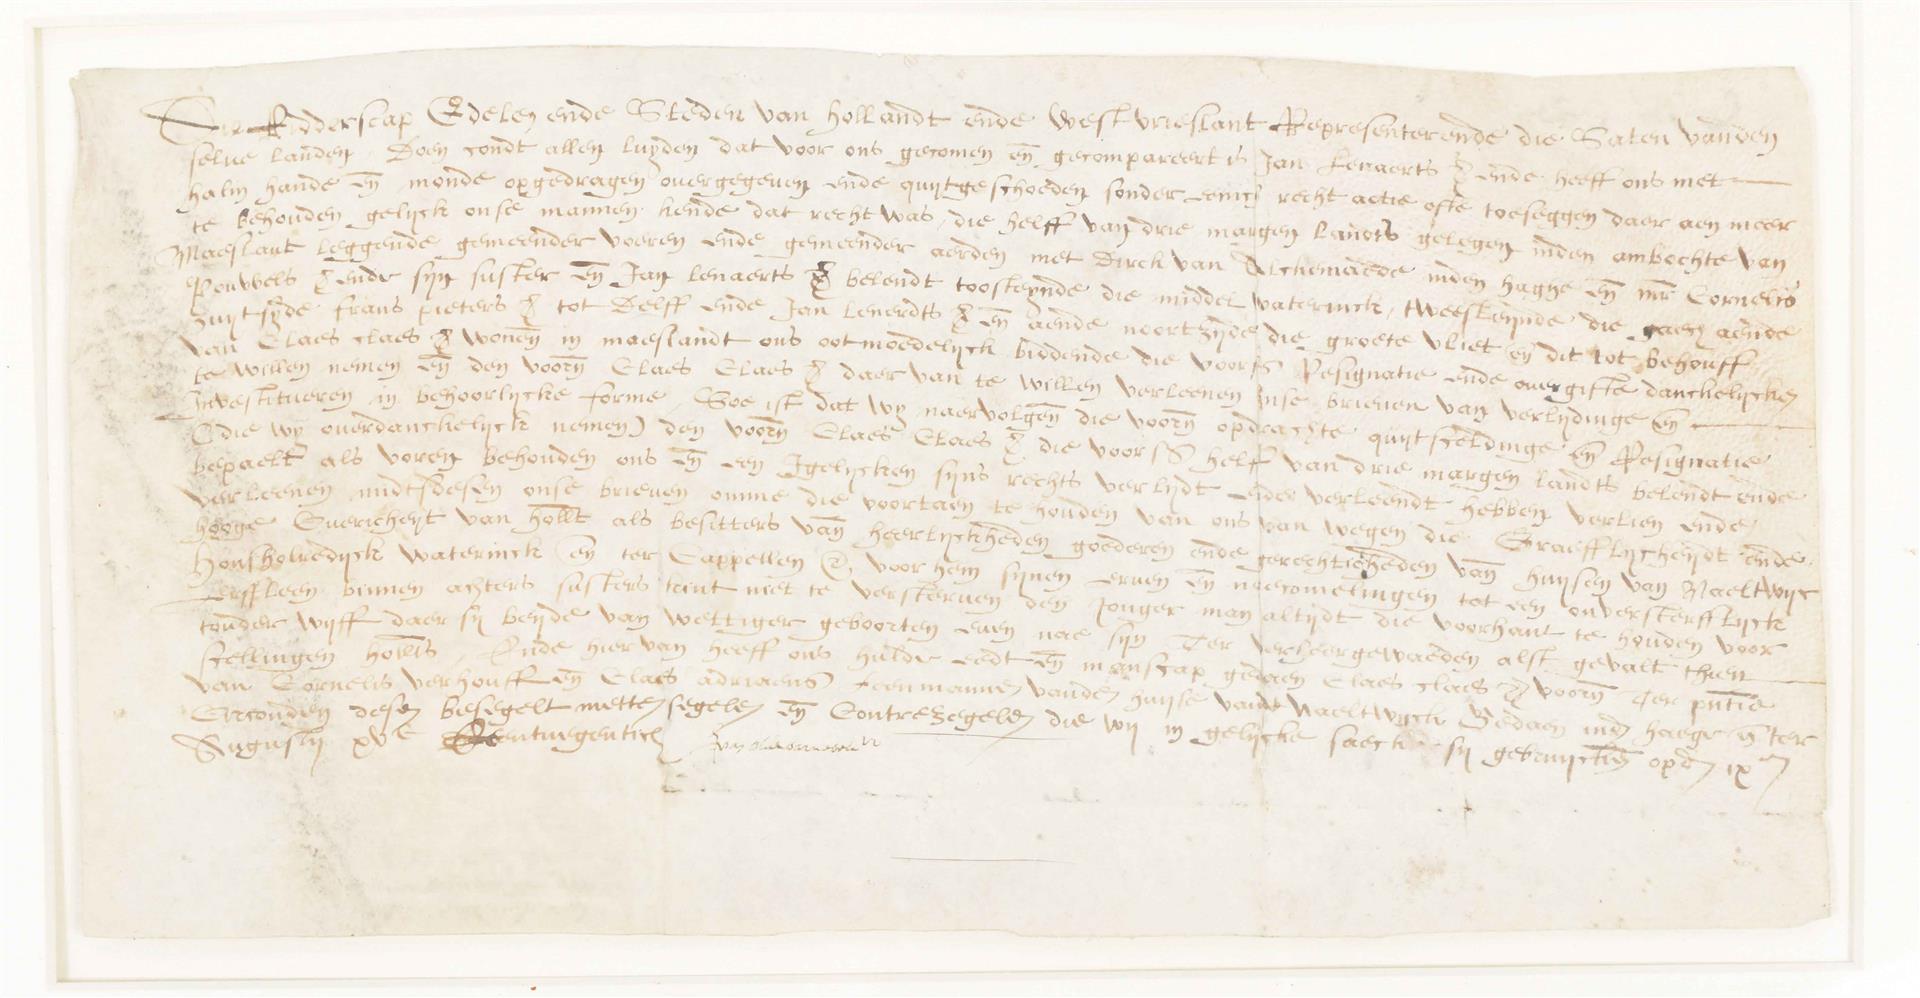 Die Ridderscap Edelen ende Steden van Hollandt ende Westvrieslant Representerende die Staten vanden
selve landen, Doen condt allen luyden dat voor ons gecomen en̄ gecompareert is Jan Lenaerts ende heeff ons met
halm hande en̄ monde opgedragen overgegeven ende quytgeschoeden sonder eenich recht actie ofte toeseggen daer aen meer
te behouden gelyck onse mannen kende dat recht was, die helff van drie margen landts gelegen inden ambochte van
Maeslant leggende gemeender voeren ende gemeender aerden met Dirck van Alckemaede inden haghe en̄ mr Cornelis
Pouwels ende syn suster en̄ Jan lenaerts belendt toosteynde die middel waterinck, tweesteynde die aende
zuytsyde frans pieters tot Delff ende Jan lenerdts en̄ aende noortzyde die groete vliet en̄ dit tot behouff
van Claes claes wonen̄ in maeslandt ons ootmoedelyck biddende die voors Resignatie ende overgifte danckelycken
te willen nemen en̄ den voorn̄ Claes Claes daer van te willen verleenen onse brieven van verlydinge en̄
Investitueren in behoorlycke forme, Soe ist dat wy naervolgen̄ die voorn̄ opdrachte quytsceldinge en̄ Resignatie
(die wy overdanckelyck nemen) den voorn̄ Claes Claes die voors helff van drie margen landts belendt ende
bepaelt als voren behouden ons en̄ een Igelycken syns rechts verlydt ende verleendt hebben verlien ende
verleenen midtsdesen onse brieven omme die voortaen te houden van ons van wegen die Graefflycheydt ende
hooge Overicheyt van hollt als besitters van̄ heerlyckheden goederen ende gerechticheden van̄ huysen van Naeltwyc
Honsholredyck waterinck en̄ ter Cappellen voor hem synen erven en̄ naecomelingen tot een onversterfflyck
erffleen binnen achters susters kint niet te versterven den jonger man altydt die voorhant te houden voor
touder wyff daer sy beyde van wettiger geboorten even nae syn Ter verheergewaeden alst gevalt thien
scellingen hollts, Ende hier van heeff ons hulde eedt en̄ manscap gedaen Claes claes voorn̄ Ter pntie
van Cornelis verhouff en̄ Claes adriaens Leenmannen vanden huyse vandt Naeltwyck Gedaen inden haege en̄ ter
Oirconden desen besegelt metten segelen en̄ Contrezegelen die wy in gelycke saecken sy gebruycken̄ opden ix en
Augusty xvc